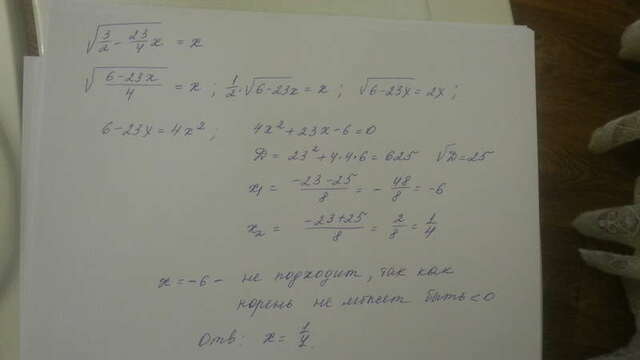 √(3/2 - 23/4 x) = x
√((6-23x)/4) = x ; 1/2·√(6-23x) = x ; √(6-23x) = 2x ;
6-23x = 4x² ; 4x²+23x-6=0
D = 23²+4·4·6 = 625 √D = 25
x₁ = (-23-25)/8 = - 48/8 = -6
x₂ = (-23+25)/8 = 2/8 = 1/4
x = -6 - не подходит, так как
корень не может быть <0
Отв: x = 1/4.